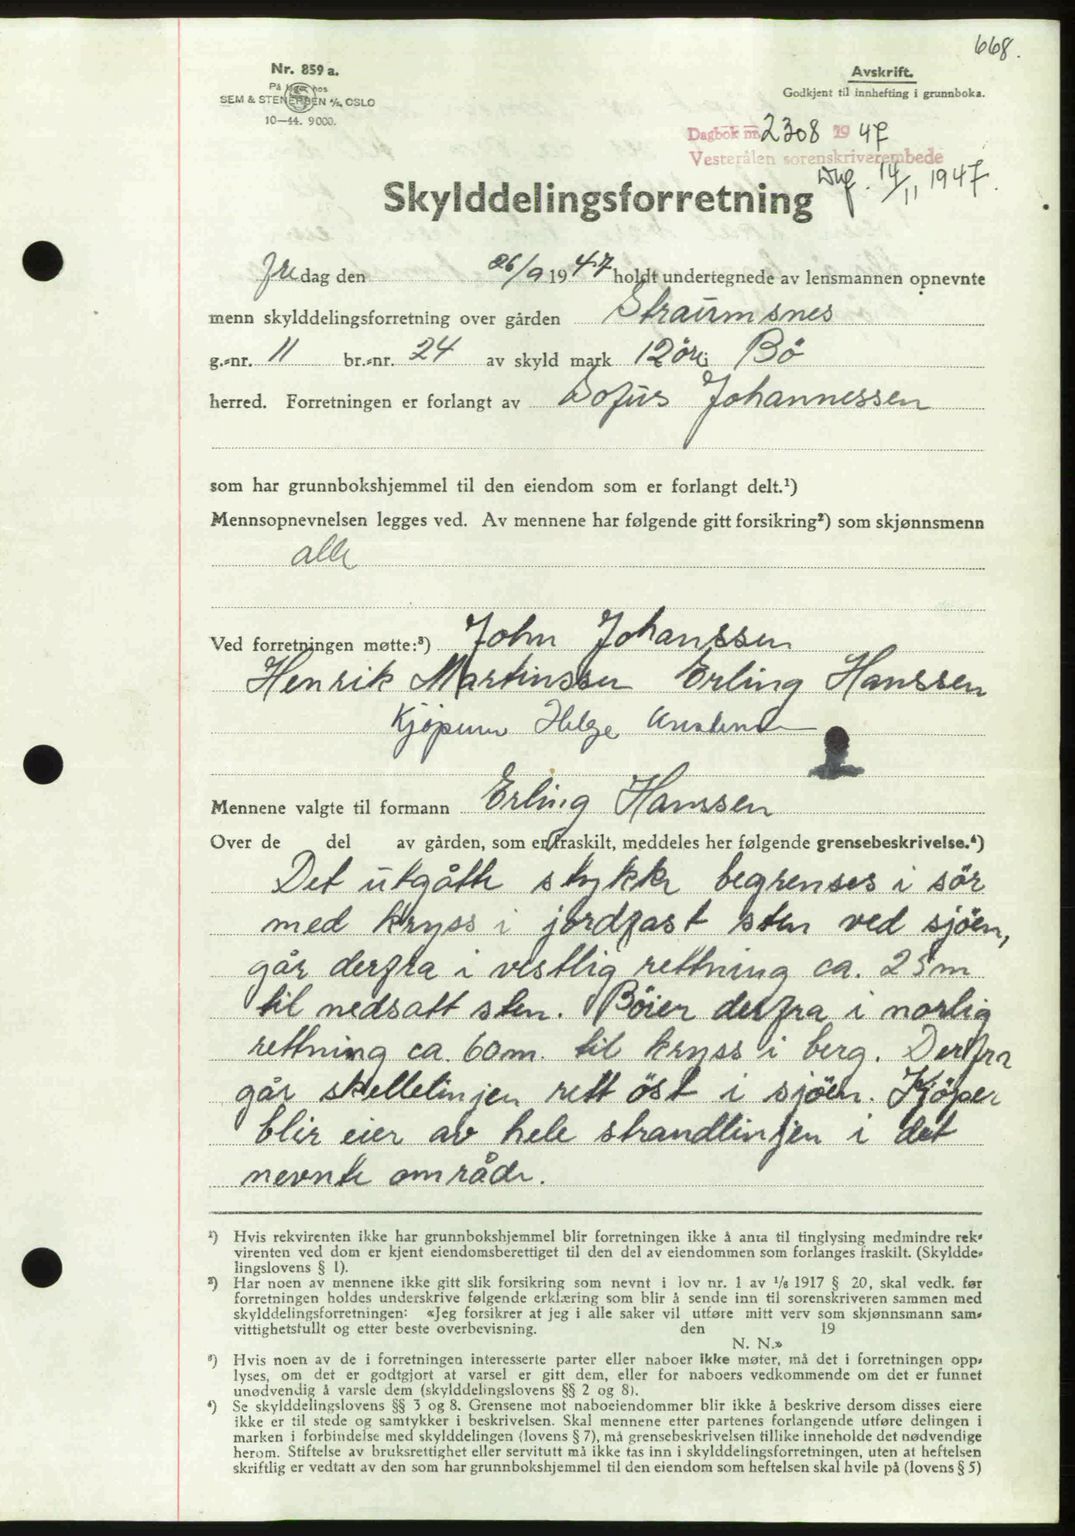 668.
Nr. 859 a.
På lager hos
SEM & STENERSEN A/S, OSLO
10—44. 9000.
Avskrift.
Godkjent til innhefting i grunnboka.
Dagbok nr. 2308 1947
Vesterålen sorenskriverembede
14/11 1947.
Skylddelingsforretning
Fredag den 26/9 1947 holdt undertegnede av lensmannen opnevnte
menn skylddelingsforretning over gården Straumsnes
g.-nr. 11 br.-nr. 24 av skyld mark 12 öre i Bö
herred. Forretningen er forlangt av Sofus Johannessen
som har grunnbokshjemmel til den eiendom som er forlangt delt.¹)
Mennsopnevnelsen legges ved. Av mennene har følgende gitt forsikring²) som skjønnsmenn
alle
Ved forretningen møtte:³) John Johanssen
Henrik Martinssen Erling Hanssen
Kjøperen Helge
Mennene valgte til formann Erling Hanssen
Over de del av gården, som er fraskilt, meddeles her følgende grensebeskrivelse.⁴)
Det utgåtte stykke begrenses i sör
med kryss i jordfast sten ved sjöen,
går derfra i vestlig rettning ca. 25 m
til nedsatt sten. Böier derfra i norlig
rettning ca. 60 m. til kryss i berg. Derfra
går skellelinjen rett öst i sjöen. Kjöper
blir eier av hele strandlinjen i det
nevnte område.
¹) Hvis rekvirenten ikke har grunnbokshjemmel blir forretningen ikke å anta til tinglysing medmindre rek-
virenten ved dom er kjent eiendomsberettiget til den del av eiendommen som forlanges fraskilt. (Skyldde-
lingslovens § 1).
²) Har noen av mennene ikke gitt slik forsikring som nevnt i lov nr. 1 av 1/8 1917 § 20, skal vedk. før
forretningen holdes underskrive følgende erklæring som blir å sende inn til sorenskriveren sammen med
skylddelingsforretningen: «Jeg forsikrer at jeg i alle saker vil utføre mitt verv som skjønnsmann sam-
vittighetsfullt og etter beste overbevisning. den 19
N. N.»
³) Hvis noen av de i forretningen interesserte parter eller naboer ikke møter, må det i forretningen opp-
lyses, om det er godtgjort at varsel er gitt dem, eller for naboers vedkommende om det er funnet
unødvendig å varsle dem (skylddelingslovens §§ 2 og 8).
⁴) Se skylddelingslovens §§ 3 og 8. Grensene mot naboeiendommer blir ikke å beskrive dersom disses eiere
ikke er til stede og samtykker i beskrivelsen. Skal mennene etter partenes forlangende utføre delingen i
marken i forbindelse med skylddelingen (lovens § 7), må grensebeskrivelsen tillike inneholde det nødvendige
herom. Stiftelse av bruksrettighet eller servitutt må ikke tas inn i skylddelingsforretningen, uten at heftelsen
skriftlig er vedtatt av den som har grunnbokshjemmel til den eiendom som heftelsen skal hvile på (lovens § 5)